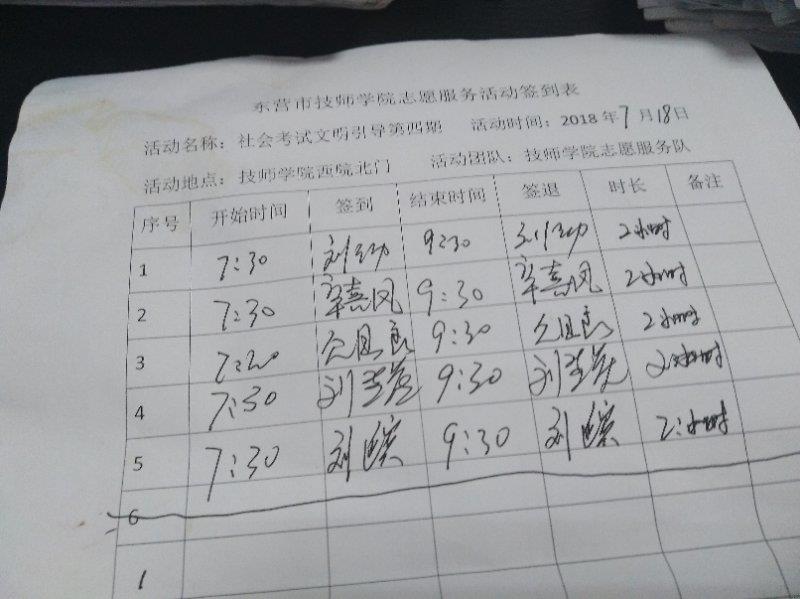 东营市技师学院志愿服务活动签到表
活动名称：社会考试文明引导第四期 活动时间：2018年7月18日
活动地点：技师学院西院北门 活动团队：技师学院志愿服务队
序号 开始时间 签到 结束时间 签退 时长 备注
1 7:30 刘 9:30 刘 2小时
2 7:30 辛喜凤 9:30 辛喜凤 2小时
3 7:20 9:30 2小时
4 7:30 刘 9:30 刘 2小时
5 7:30 刘 9:30 刘 2小时
6
1